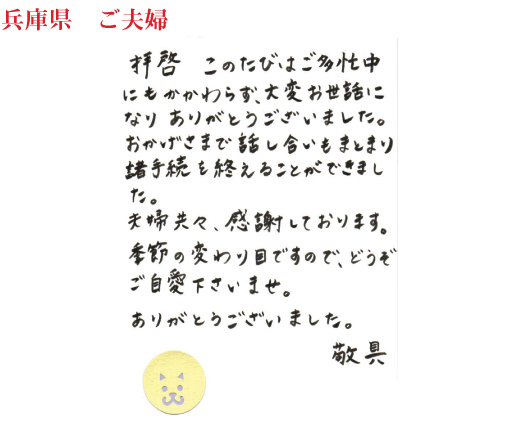 兵庫県　ご夫婦
拝啓　このたびはご多忙中
にもかかわらず、大変お世話に
なり ありがとうございました。
おかげさまで話し合いもまとまり
諸手続を終えることができまし
た。
夫婦共々、感謝しております。
季節の変わり目ですので、どうぞ
ご自愛下さいませ。
ありがとうございました。
敬具